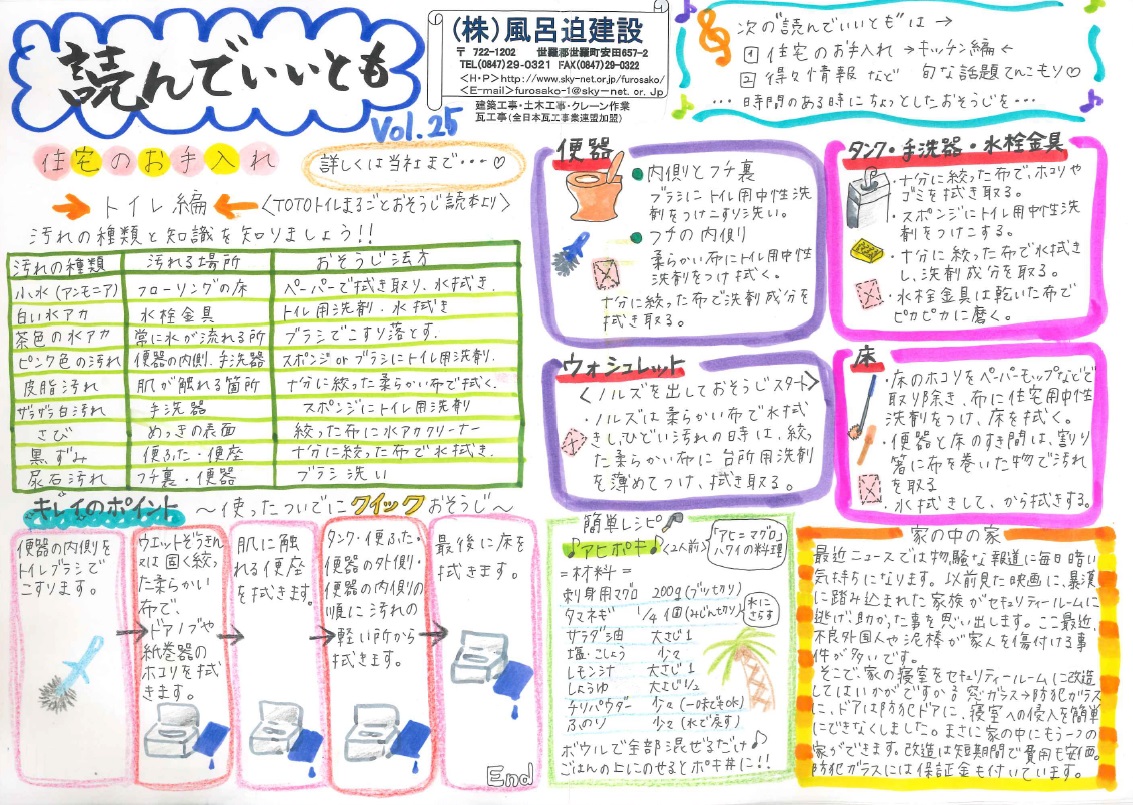 読んでいいとも
Vol.25
(株)風呂迫建設
〒 722-1202 世羅郡世羅町安田657-2
TEL(0847)29-0321 FAX(0847)29-0322
<H・P>http://www.sky-net.or.jp/furosako/
<E-mail>furosako-1@sky-net.or.jp
建築工事・土木工事・クレーン作業
瓦工事(全日本瓦工事業連盟加盟)
次の"読んでいいとも"は→
1 住宅のお手入れ→キッチン編←
2 得々情報など 旬な話題てんこもり♡
…時間のある時にちょっとしたおそうじを…
住宅のお手入れ
詳しくは当社まで・・・♡
→トイレ編← <TOTOトイレまるごとおそうじ読本より>
汚れの種類と知識を知りましょう!!
汚れの種類 汚れる場所 おそうじ法方
小水(アンモニア) フローリングの床 ペーパーで拭き取り、水拭き.
白い水アカ 水栓金具 トイレ用洗剤・水拭き
茶色の水アカ 常に水が流れる所 ブラシでこすり落とす.
ピンク色の汚れ 便器の内側.手洗器 スポンジorブラシにトイレ用洗剤.
皮脂汚れ 肌が触れる箇所 十分に絞った柔らかい布で拭く.
ザラザラ白汚れ 手洗器 スポンジにトイレ用洗剤
さび めっきの表面 絞った布に水アカクリーナー
黒ずみ 便ふた・便座 十分に絞った布で水拭き.
尿石汚れ フチ裏・便器 ブラシ洗い
キレイのポイント ~使ったついでにクイックおそうじ~
便器の内側を
トイレブラシで
こすります。
ウエットぞうきん
又は固く絞っ
た柔らかい
布で、
ドアノブや
紙巻器の
ホコリを拭き
ます。
肌に触
れる便座
を拭きます。
タンク・便ふた・
便器の外側・
便器の内側の
順に汚れの
軽い所から
拭きます。
最後に床を
拭きます。
End
便器
●内側とフチ裏
ブラシにトイレ用中性洗
剤をつけこすり洗い。
●フチの内側
柔らかい布にトイレ用中性
洗剤をつけ拭く。
十分に絞った布で洗剤成分を
拭き取る。
タンク・手洗器・水栓金具
・十分に絞った布で、ホコリや
ゴミを拭き取る。
・スポンジにトイレ用中性洗
剤をつけこする。
・十分に絞った布で水拭き
し、洗剤成分を取る。
・水栓金具は乾いた布で
ピカピカに磨く。
ウォシュレット
<ノルズを出しておそうじスタート>
・ノルズは柔らかい布で水拭
きし、ひどい汚れの時は、絞っ
た柔らかい布に台所用洗剤
を薄めてつけ、拭き取る。
床
・床のホコリをペーパーモップなどで
取り除き、布に住宅用中性
洗剤をつけ、床を拭く。
・便器と床のすき間は、割り
箸に布を巻いた物で汚れ
を取る
・水拭きして、から拭きする。
簡単レシピ
♪アヒポキ♪<2人前>
「アヒ=マグロ」
ハワイの料理
=材料=
刺身用マグロ 200g(ブツ切り)
タマネギ 1/4個(みじん切り)
水にさらす
サラダ油 大さじ1
塩・こしょう 少々
レモン汁 大さじ1
しょうゆ 大さじ1/2
チリパウダー 少々(一味でもOK)
ふのり 少々(水で戻す)
ボウルで全部混ぜるだけ♪
ごはんの上にのせるとポキ丼に!!
家の中の家
最近ニュースでは物騒な報道に毎日暗い
気持ちになります。以前見た映画に、暴漢
に踏み込まれた家族がセキュリティールームに
逃げ、助かった事を思い出します。ここ最近、
不良外国人や泥棒が家人を傷付ける事
件が多いです。
そこで、家の寝室をセキュリティールームに改造
してはいかがですか。窓ガラス→防犯ガラス
に、ドアは防犯ドアに、寝室への侵入を簡単
にできなくしました。まさに家の中にもう一つの
家ができます。改造は短期間で費用も安価。
防犯ガラスには保証金も付いています。